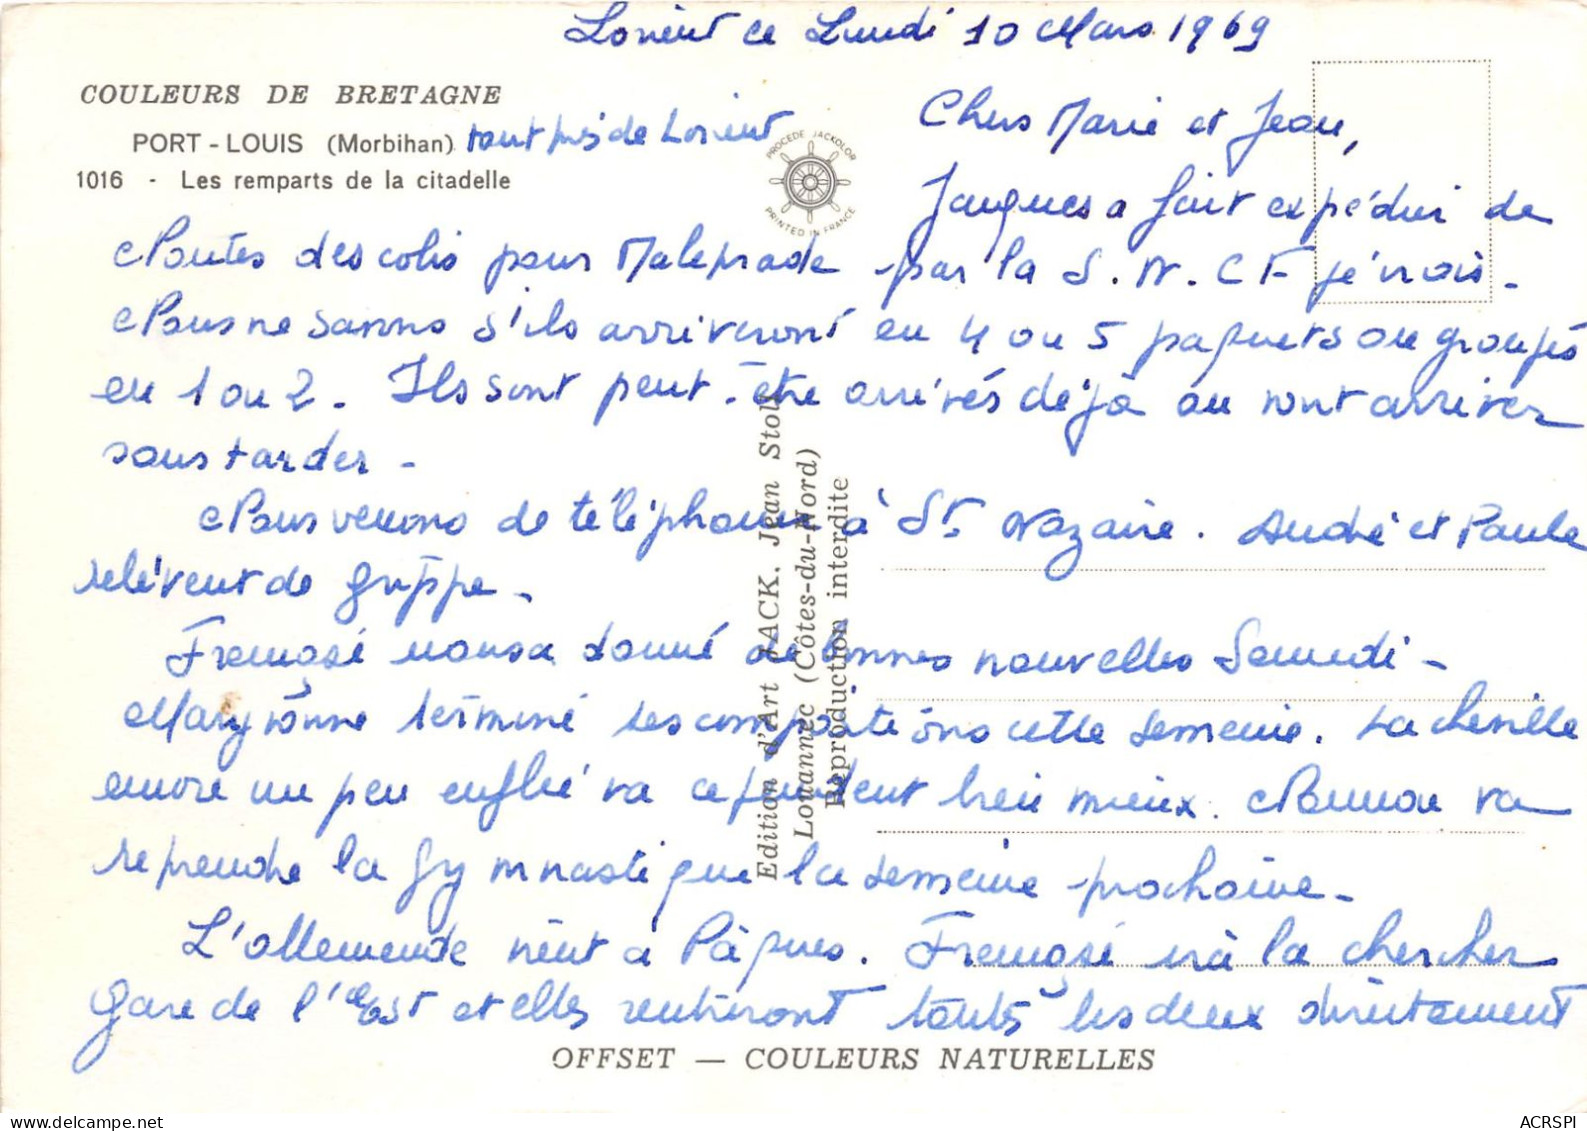 Lorient ce Lundi 10 Mars 1969
COULEURS DE BRETAGNE
PORT-LOUIS (Morbihan) tout près de Lorient
1016 - Les remparts de la citadelle
PROCEDE JACKOLOR
PRINTED IN FRANCE
Chers Marie et Jean,
Jacques a fait expédier de
Nantes des colis pour Maleprade par la S.N.C.F je crois.
Nous ne savons s'ils arriveront en 4 ou 5 paquets ou groupés
en 1 ou 2. Ils sont peut-être arrivés déjà ou vont arriver
sans tarder.
Nous venons de téléphoner à St Nazaire. André et Paule
relèvent de grippe.
Françoise nous a donné de bonnes nouvelles Samedi.
Maryvonne termine ses compositions cette semaine. La cheville
encore un peu enflée va cependant bien mieux. va
reprendre la gymnastique la semaine prochaine.
L'allemande vient à Pâques. Françoise ira la chercher
Gare de l'Est et elles rentreront toutes les deux directement
Edition d'Art JACK. Jean Stoll
Louannec (Côtes-du-Nord)
Reproduction interdite
OFFSET — COULEURS NATURELLES
ACRSPI